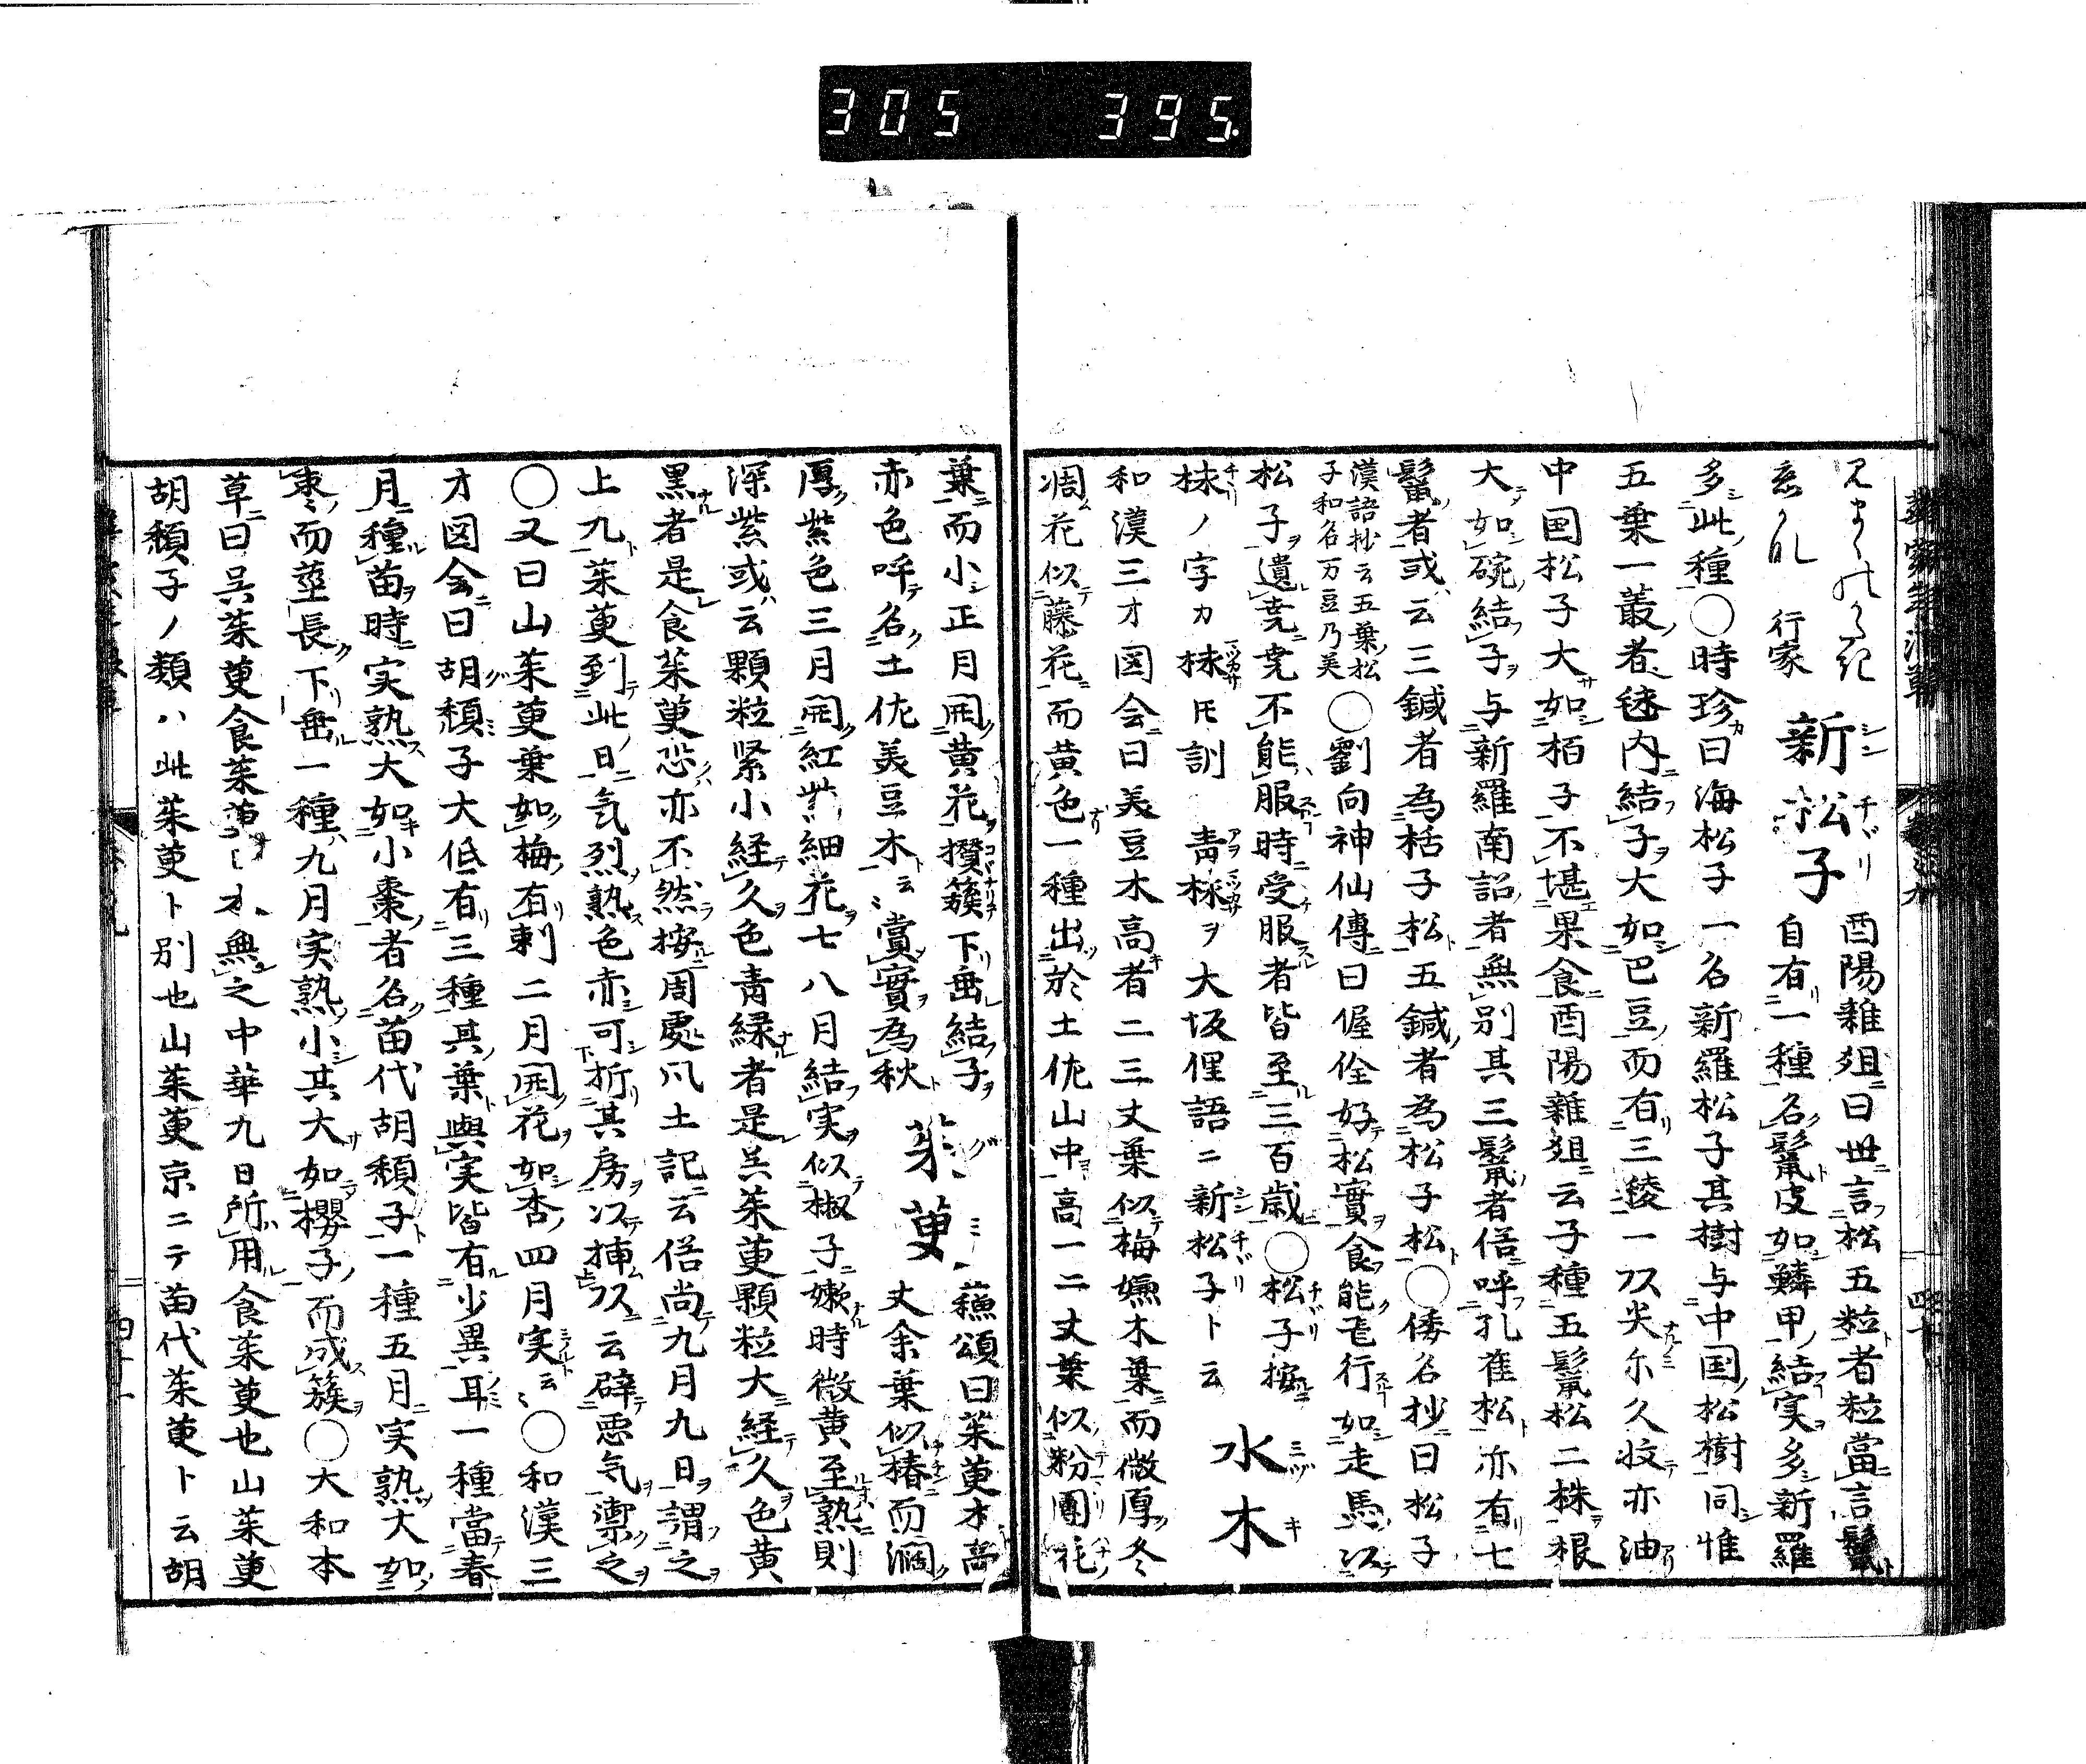 305 395.
行家 新松子 酉陽雜俎曰世言松五粒者粒當言鬣
自有一種名鬣皮如鱗甲結実多新羅
多此種〇時珍曰海松子一名新羅松子其樹与中国松樹同惟
五葉一叢者毬内結子大如巴豆而有三稜一頭尖尔久收亦油
中国松子大如栢子不堪果食酉陽雜俎云子種五鬣松二株根
大如碗結子与新羅南詔者無別其三鬣者俗呼孔雀松亦有七
鬣者或云三鍼者為栝子松五鍼者為松子松〇倭名抄曰松子
漢語抄云五葉松
子和名万豆乃美
〇劉向神仙傳曰偓佺好松實食能飛行如走馬以
松子遺堯堯不能服時受服者皆至三百歳〇松子按
梂ノ字カ梂トモ訓 青梂ヲ大坂俚語ニ新松子ト云 水木
和漢三才図会曰美豆木高者二三丈葉似梅嫌木葉而微厚冬
凋花似藤花而黄色一種出於土佐山中高一二丈葉似粉團花
葉而小正月開黄花攅簇下垂結子
赤色呼名土佐美豆木云賞實為秋 茱萸 蘓頌曰茱萸木高
丈余葉似椿而濶
厚紫色三月開紅紫細花七八月結実似椒子嫩時微黄至熟則
深紫或云顆粒緊小経久色青緑者是呉茱萸顆粒大経久色黄
黒者是食茱萸恐亦不然按周處風土記云俗尚九月九日謂之
上九茱萸到此日気烈熟色赤可折其房以挿頭云辟悪気禦之
〇又曰山茱萸葉如梅有刺二月開花如杏四月実云〇和漢三
才図会曰胡頽子大低有三種其葉與実皆有少異耳一種當春
月種苗時実熟大如小棗者名苗代胡頽子一種五月実熟大如
棗而莖長下垂一種九月実熟小其大如櫻子而成簇〇大和本
草曰呉茱萸食茱萸日本無之中華九日所用食茱萸也山茱萸
胡頽子ノ類ハ此茱萸ト別也山茱萸京ニテ苗代茱萸ト云胡